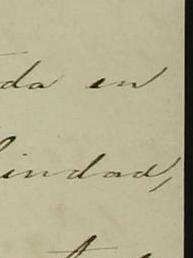 da en
lindad,